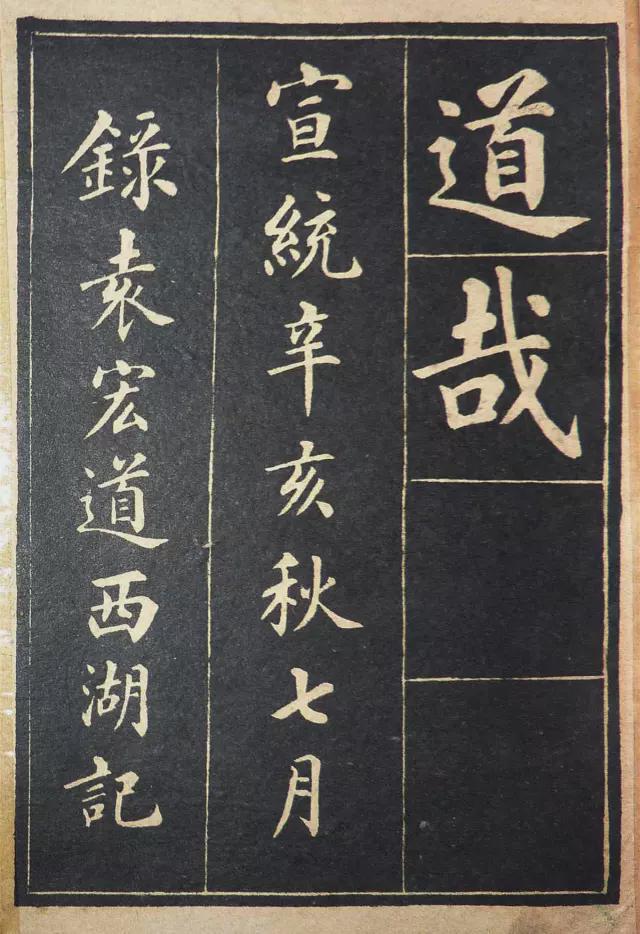 道哉
宣統辛亥秋七月
錄袁宏道西湖記